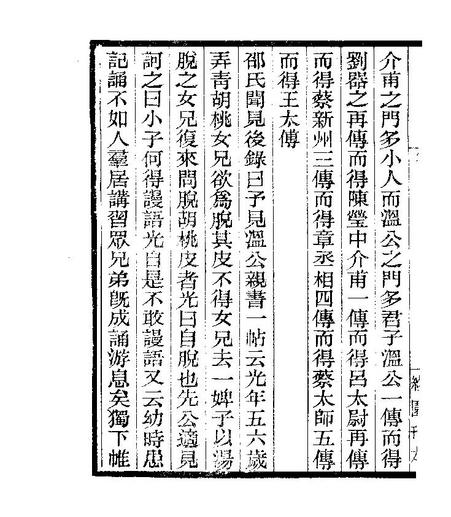 介甫之門多小人而溫公之門多君子溫公一傳而得
劉器之再傳而得陳瑩中介甫一傳而得呂太尉再傳
而得蔡新州三傳而得章丞相四傳而得蔡太師五傳
而得王太傅
邵氏聞見後錄曰予見溫公親書一帖云光年五六歲
弄青胡桃女兄欲爲脫其皮不得女兄去一婢子以湯
脫之女兄復來問脫胡桃皮者光曰自脫也先公適見
訶之曰小子何得謾語光自是不敢謾語又云幼時患
記誦不如人羣居講習眾兄弟旣成誦游息矣獨下帷